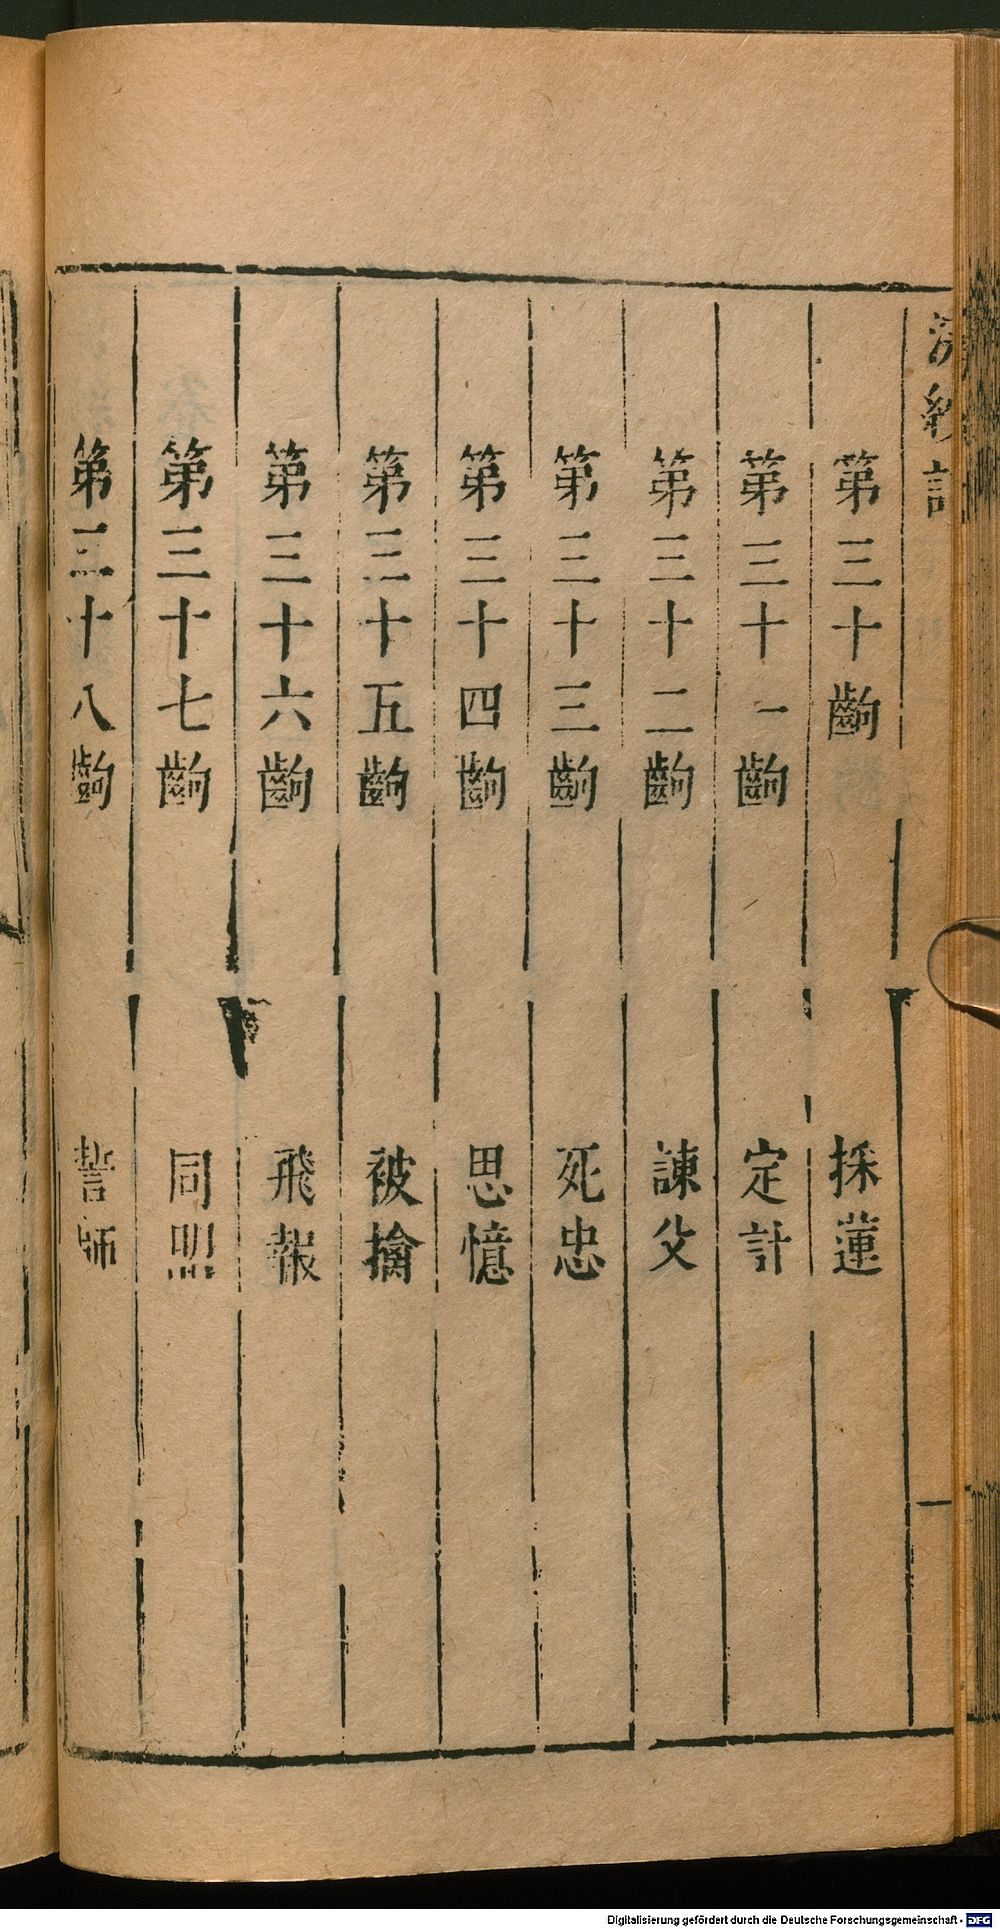 浣紗記
第三十齣 採蓮
第三十一齣 定計
第三十二齣 諫父
第三十三齣 死忠
第三十四齣 思憶
第三十五齣 被擒
第三十六齣 飛報
第三十七齣 同盟
第三十八齣 誓師
Digitalisierung gefördert durch die Deutsche Forschungsgemeinschaft - DFG